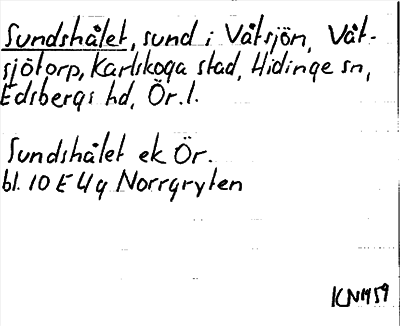 Sundshålet, sund i Våtsjön, Våt-
sjötorp, Karlskoga stad, Hidinge sn,
Edsbergs hd, Ör.l.
Sundshålet ek Ör.
bl. 10 E 4g Norrgryten
KNM59